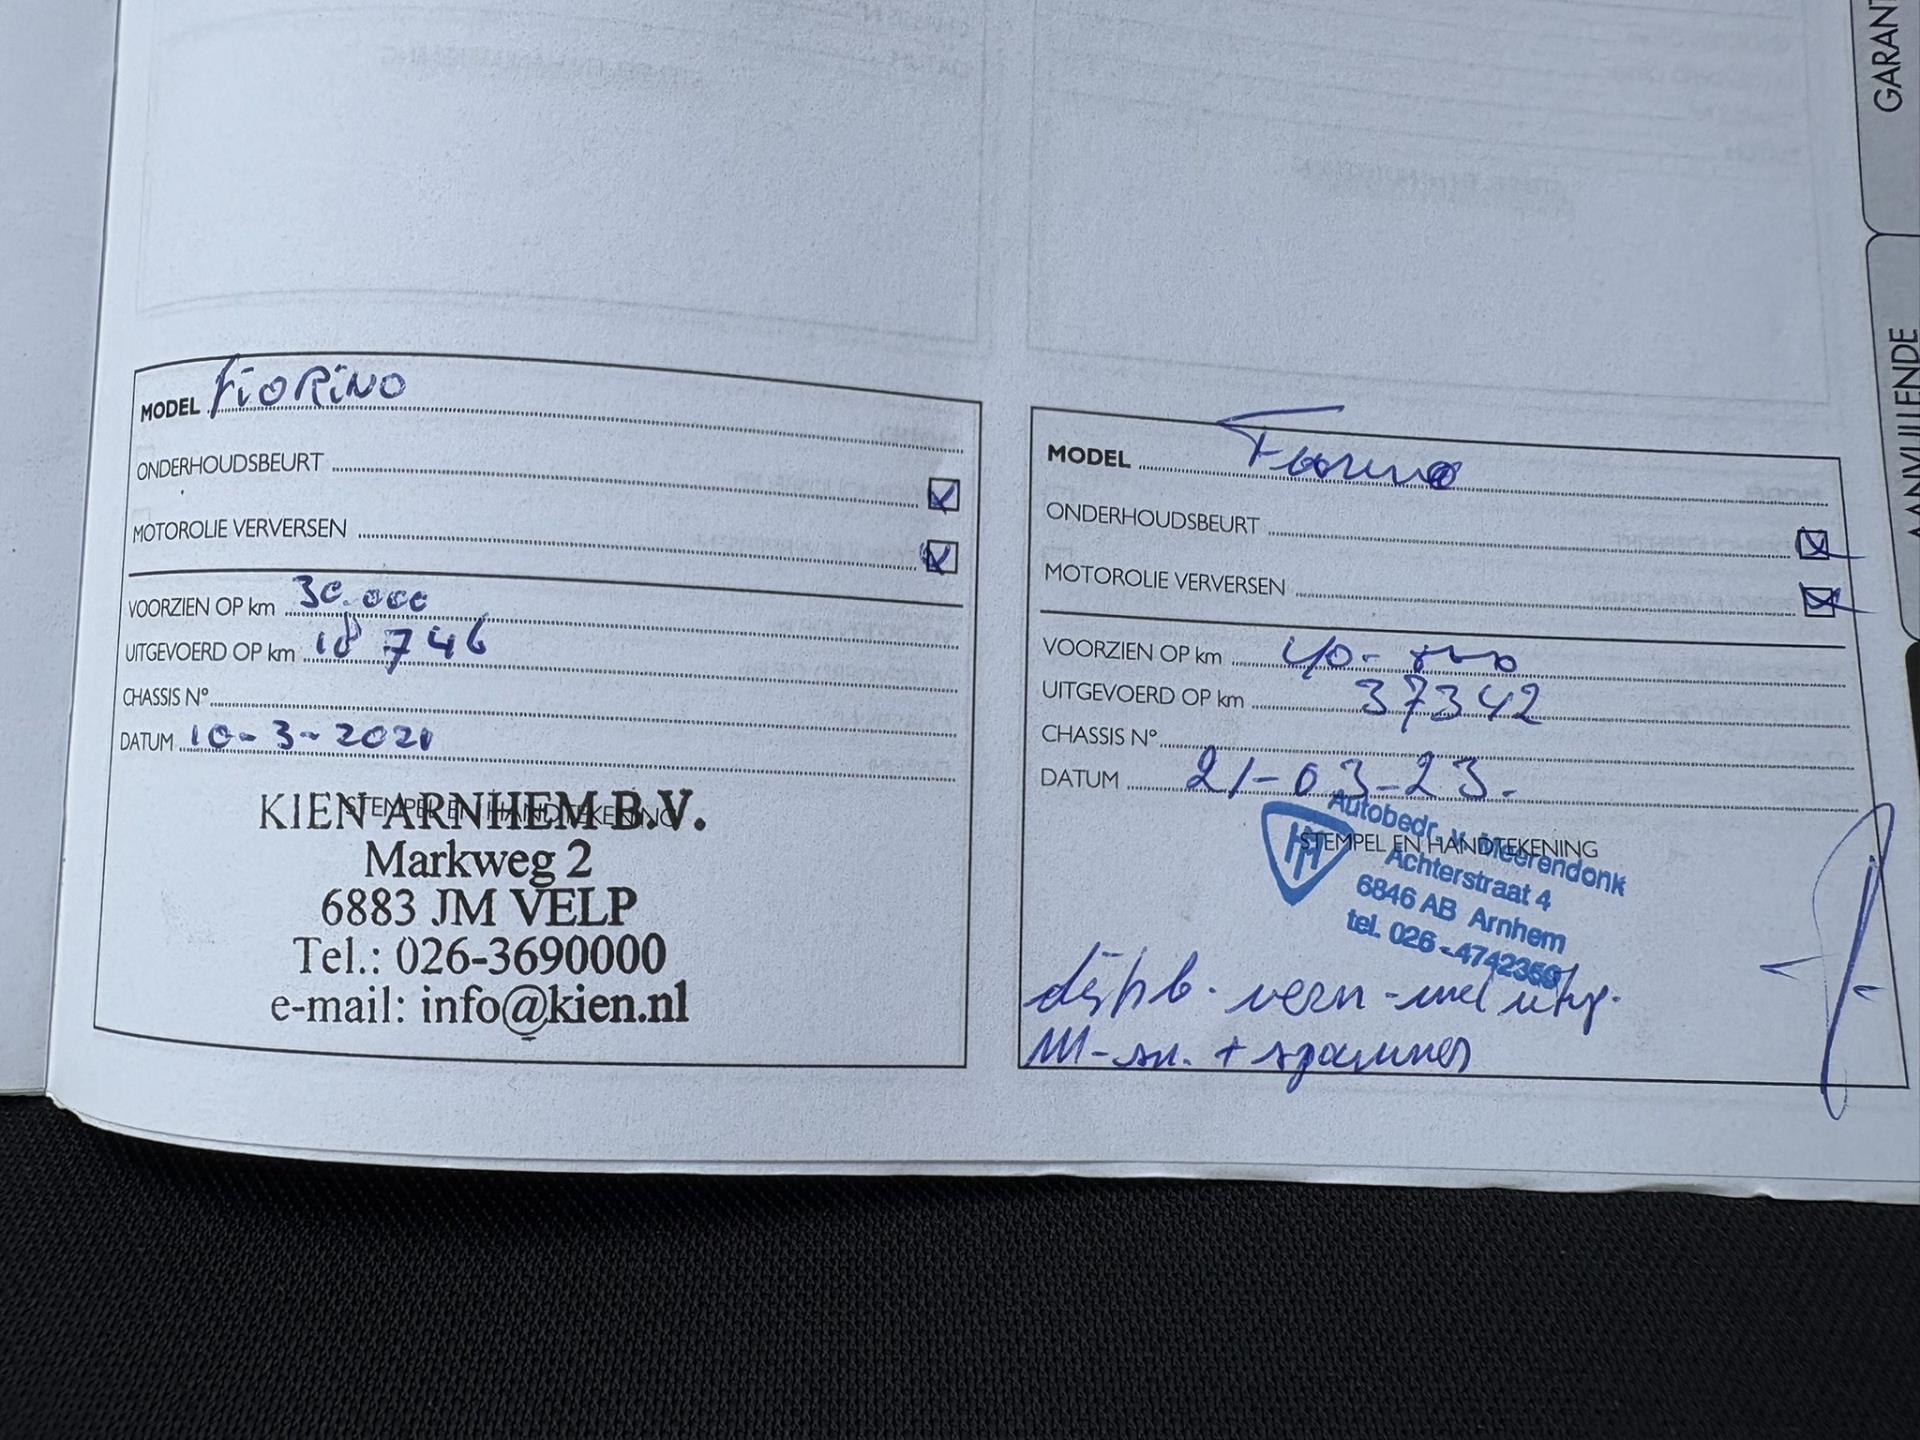 GARANT
AANVULLENDE
MODEL FiORiNO
ONDERHOUDSBEURT
MOTOROLIE VERVERSEN
VOORZIEN OP km 30.000
UITGEVOERD OP km 18 746
CHASSIS N°
DATUM 10-3-2021
STEMPEL EN HANDTEKENING
KIEN ARNHEM B.V.
Markweg 2
6883 JM VELP
Tel.: 026-3690000
e-mail: info@kien.nl
MODEL Fiorino
ONDERHOUDSBEURT
MOTOROLIE VERVERSEN
VOORZIEN OP km 40-000
UITGEVOERD OP km 37342
CHASSIS N°
DATUM 21-03-23.
STEMPEL EN HANDTEKENING
Autobedr. v. Meerendonk
Achterstraat 4
6846 AB Arnhem
tel. 026-4742359
vern
+ spanner